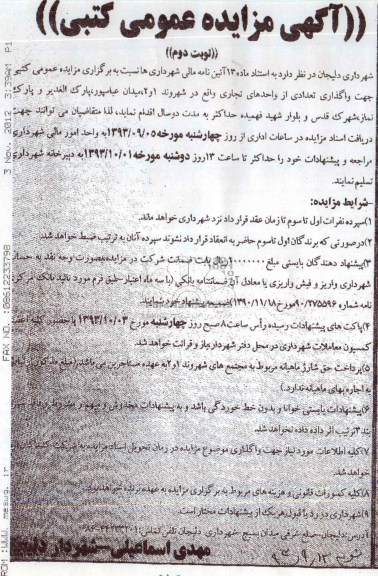 ((آگهی مزایده عمومی کتبی))
((نوبت دوم))
شهرداری دلیجان در نظر دارد به استناد ماده ۱۳ آئین نامه مالی شهرداری ها نسبت به برگزاری مزایده عمومی کتبی
جهت واگذاری تعدادی از واحدهای تجاری واقع در شهروند ۱و۲،میدان عباسپور،پارک الغدیر و پارک
نماز،شهرک قدس و بلوار شهید فهمیده حداکثر به مدت دوسال اقدام نماید، لذا متقاضیان می توانند جهت
دریافت اسناد مزایده در ساعات اداری از روز چهارشنبه مورخه ۱۳۹۳/۰۹/۰۵ به واحد امور مالی شهرداری
مراجعه و پیشنهادات خود را حداکثر تا ساعت ۱۳ روز دوشنبه مورخه ۱۳۹۳/۱۰/۰۱ به دبیرخانه شهرداری
تسلیم نمایند.
-شرایط مزایده:
۱)سپرده نفرات اول تا سوم تا زمان عقد قرارداد نزد شهرداری خواهد ماند.
۲)درصورتی که برندگان اول تا سوم حاضر به انعقاد قرارداد نشوند سپرده آنان به ترتیب ضبط خواهد شد.
۳)پیشنهاد دهندگان بایستی مبلغ ریال بابت ضمانت شرکت در مزایده بصورت وجه نقد به حساب
شهرداری واریز و فیش واریزی یا معادل آن ضمانتنامه بانکی (با سه ماه اعتبار-طبق فرم مورد تائید بانک مرکزی
نامه شماره ۹۰/۲۷۵۵۹۶مورخ ۱۳۹۰/۱۱/۱۸)ضمیمه پیشنهاد خود نمایند.
۴)پاکت های پیشنهادات رسیده رأس ساعت ۸صبح روز چهارشنبه مورخ ۱۳۹۳/۱۰/۰۳ با حضور کلیه اعضاء
کمیسیون معاملات شهرداری در محل دفتر شهردار باز و قرائت خواهد شد.
۵)پرداخت حق شارژ ماهیانه مربوط به مجتمع های شهروند ۱و۲به عهده مستاجرین می باشد.(مبلغ مذکور
به اجاره بهای ماهیانه ندارد.)
۶)پیشنهادات بایستی خوانا و بدون خط خوردگی باشد و به پیشنهادات مخدوش و مبهم و مشروط
بند۳ترتیب اثر داده نخواهد شد.
۷)کلیه اطلاعات مورد نیاز جهت واگذاری موضوع مزایده در زمان تحویل اسناد مزایده به شرکت کنندگان
خواهد شد.
۸)کلیه کسورات قانونی و هزینه های مربوط به برگزاری مزایده به عهده برنده خواهد بود.
۹)شهرداری در رد یا قبول هر یک از پیشنهادات مختار است.
آدرس:دلیجان-ضلع شرقی میدان بسیج-شهرداری دلیجان تلفن تماس:
مهدی اسماعیلی-شهردار دلیجان
3 Nov. 2012 3:39AM P1
FAX NO. :08612233798